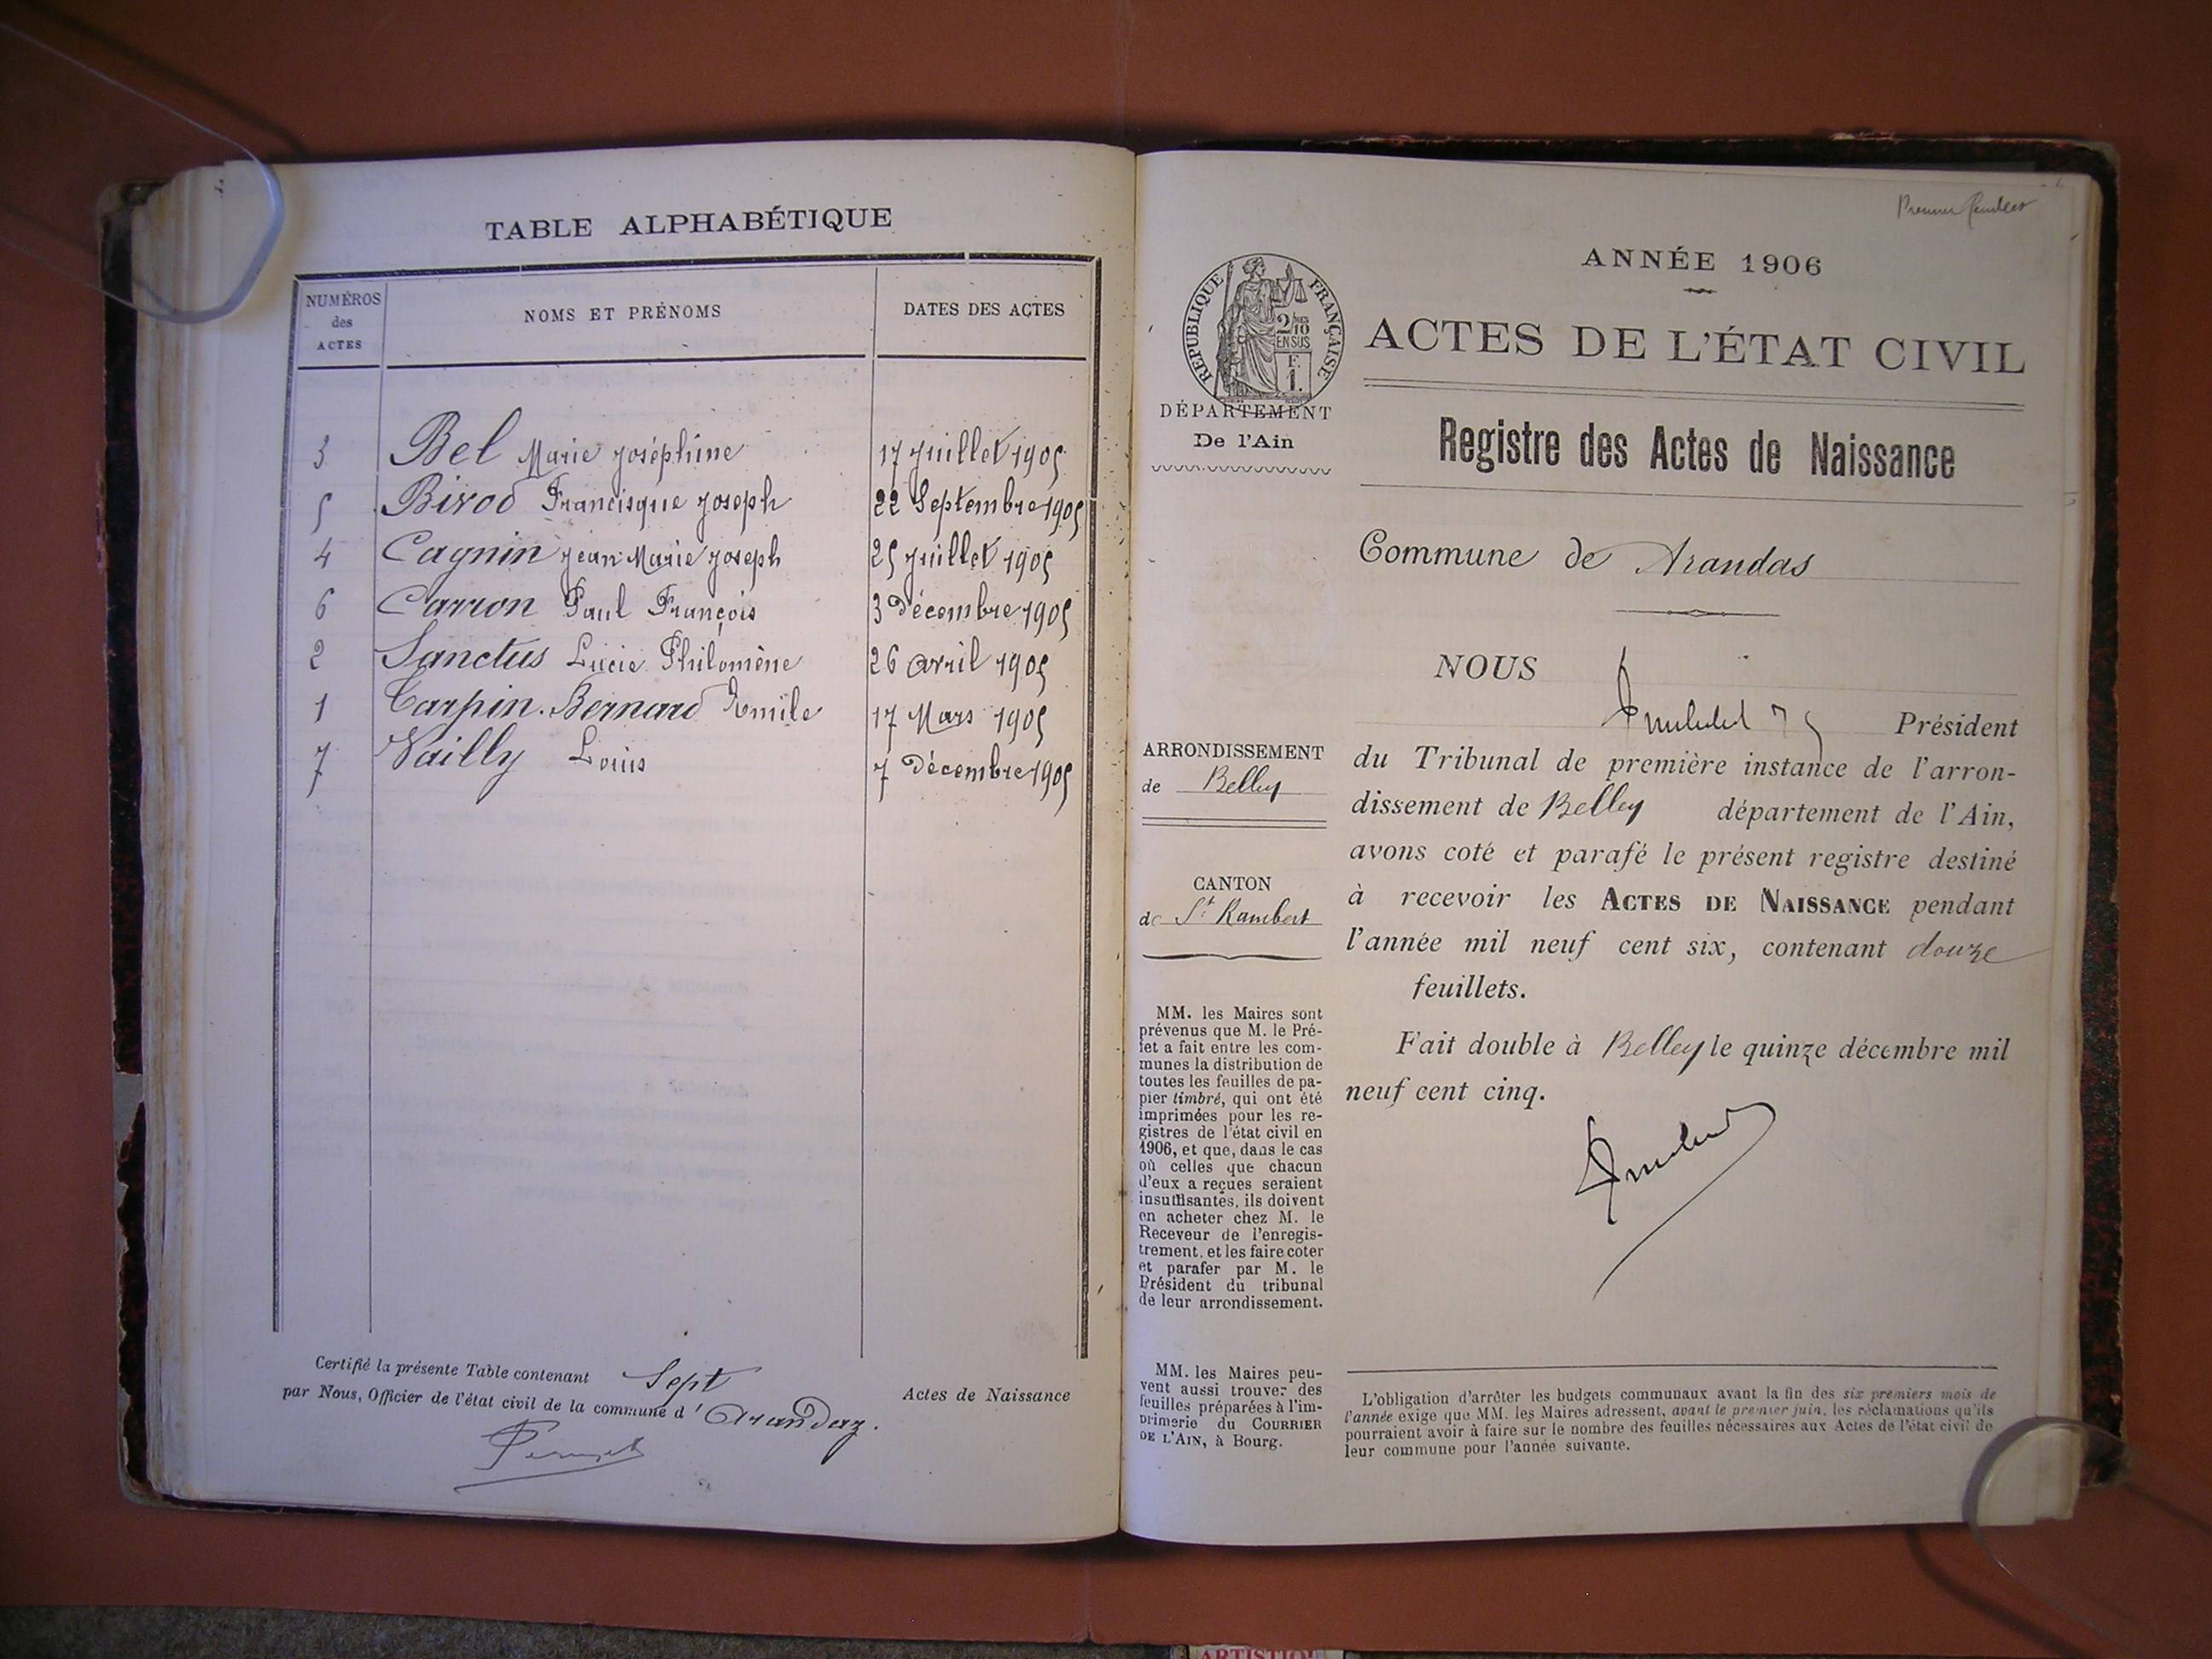 TABLE ALPHABÉTIQUE
NUMÉROS des ACTES
NOMS ET PRÉNOMS
DATES DES ACTES
3 Bel Marie Joséphine 17 Juillet 1905
5 Birod Francisque Joseph 22 Septembre 1905
4 Cagnin Jean Marie Joseph 25 Juillet 1905
6 Carron Paul François 3 Décembre 1905
2 Sanctus Lucie Philomène 26 Avril 1905
1 Tarpin-Bernard Emile 17 Mars 1905
7 Vailly Louis 7 Décembre 1905
Certifié la présente Table contenant Sept Actes de Naissance
par Nous, Officier de l'état civil de la commune d' Arandaz.
Premier
RÉPUBLIQUE FRANÇAISE
2/10
EN SUS
F.
1.
DÉPARTEMENT
De l'Ain
ARRONDISSEMENT
de Belley
CANTON
de St Rambert
MM. les Maires sont
prévenus que M. le Pré-
fet a fait entre les com-
munes la distribution de
toutes les feuilles de pa-
pier timbré, qui ont été
imprimées pour les re-
gistres de l'état civil en
1906, et que, dans le cas
où celles que chacun
d'eux a reçues seraient
insuffisantes, ils doivent
en acheter chez M. le
Receveur de l'enregis-
trement, et les faire coter
et parafer par M. le
Président du tribunal
de leur arrondissement.
MM. les Maires peu-
vent aussi trouver des
feuilles préparées à l'im-
primerie du COURRIER
DE L'AIN, à Bourg.
ANNÉE 1906
ACTES DE L'ÉTAT CIVIL
Registre des Actes de Naissance
Commune de Arandas
NOUS
Président
du Tribunal de première instance de l'arron-
dissement de Belley département de l'Ain,
avons coté et parafé le présent registre destiné
à recevoir les ACTES DE NAISSANCE pendant
l'année mil neuf cent six, contenant douze
feuillets.
Fait double à Belley le quinze décembre mil
neuf cent cinq.
L'obligation d'arrêter les budgets communaux avant la fin des six premiers mois de
l'année exige que MM. les Maires adressent, avant le premier juin, les réclamations qu'ils
pourraient avoir à faire sur le nombre des feuilles nécessaires aux Actes de l'état civil de
leur commune pour l'année suivante.